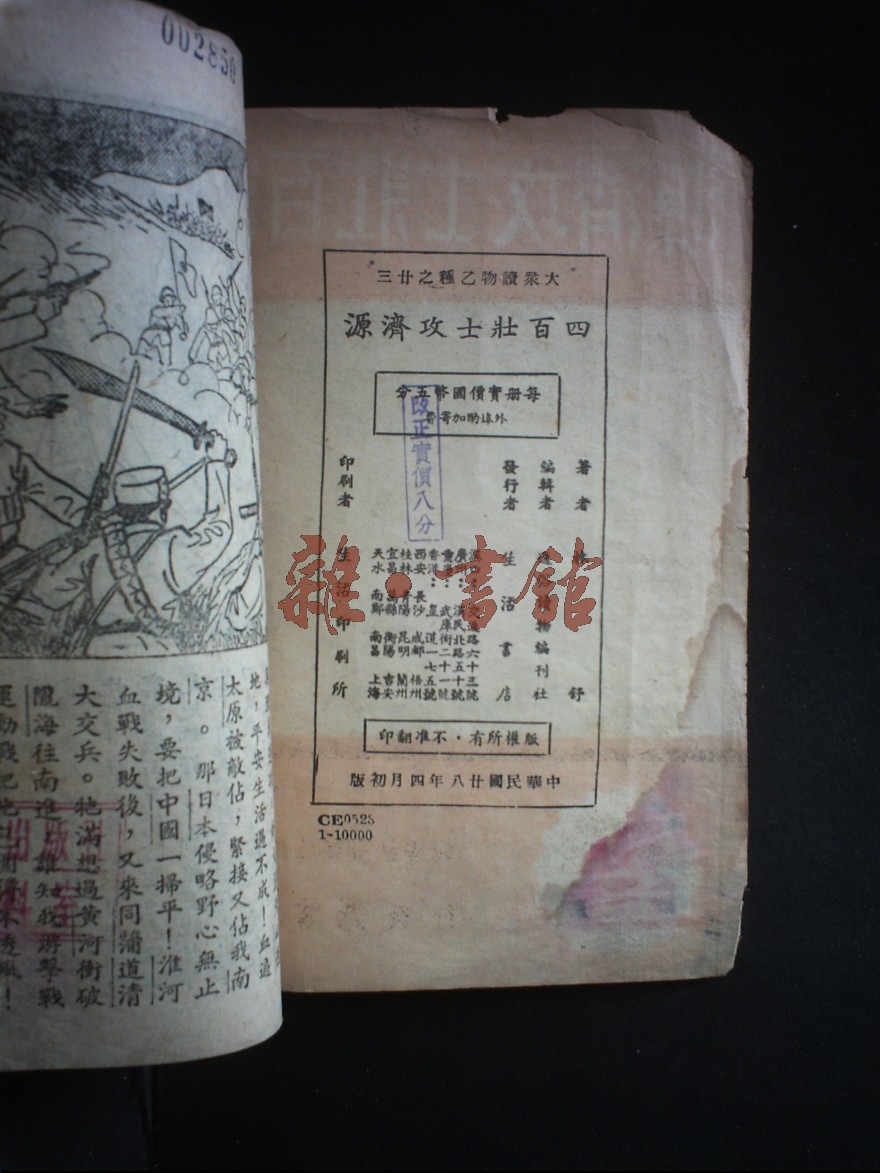 002850
大眾讀物乙種之廿三
四百壯士攻濟源
每册實價國幣五分
外埠酌加寄費
改正實價八分
著者
舒
編輯者
讀物編刊社
發行者
生活書店
重慶 武庫街二十一號
香港 皇后道一七五號
西安 長沙 成都 梧州
桂林 貴陽 昆明 蘭州
宜昌 萬縣 衡陽 吉安
天水 南鄭 南昌 上海
印刷者
生活印刷所
版權所有·不准翻印
中華民國廿八年四月初版
CE0528
1-10000
雜·書館
地，平安生活過不成！血邊
太原被敵佔，緊接又佔我南
京。那日本侵略野心無止
境，要把中國一掃平！淮河
血戰失敗後，又來同蒲道清
大交兵。牠滿想過黃河衝破
隴海往南進，誰知我游擊戰